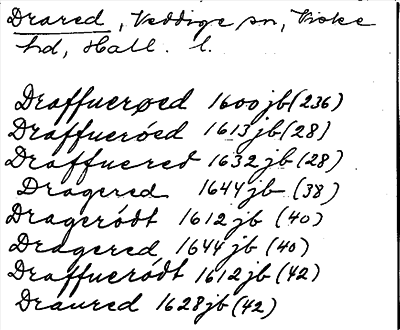 Drared, Veddige sn, Viske
hd, Hall. l.
Draffuerøed 1600 jb (236)
Draffueröed 1613 jb (28)
Draffuered 1632 jb (28)
Dragered 1644 jb (38)
Dragerödt 1612 jb (40)
Dragered 1644 jb (40)
Draffuerödt 1612 jb (42)
Draured 1628 jb (42)